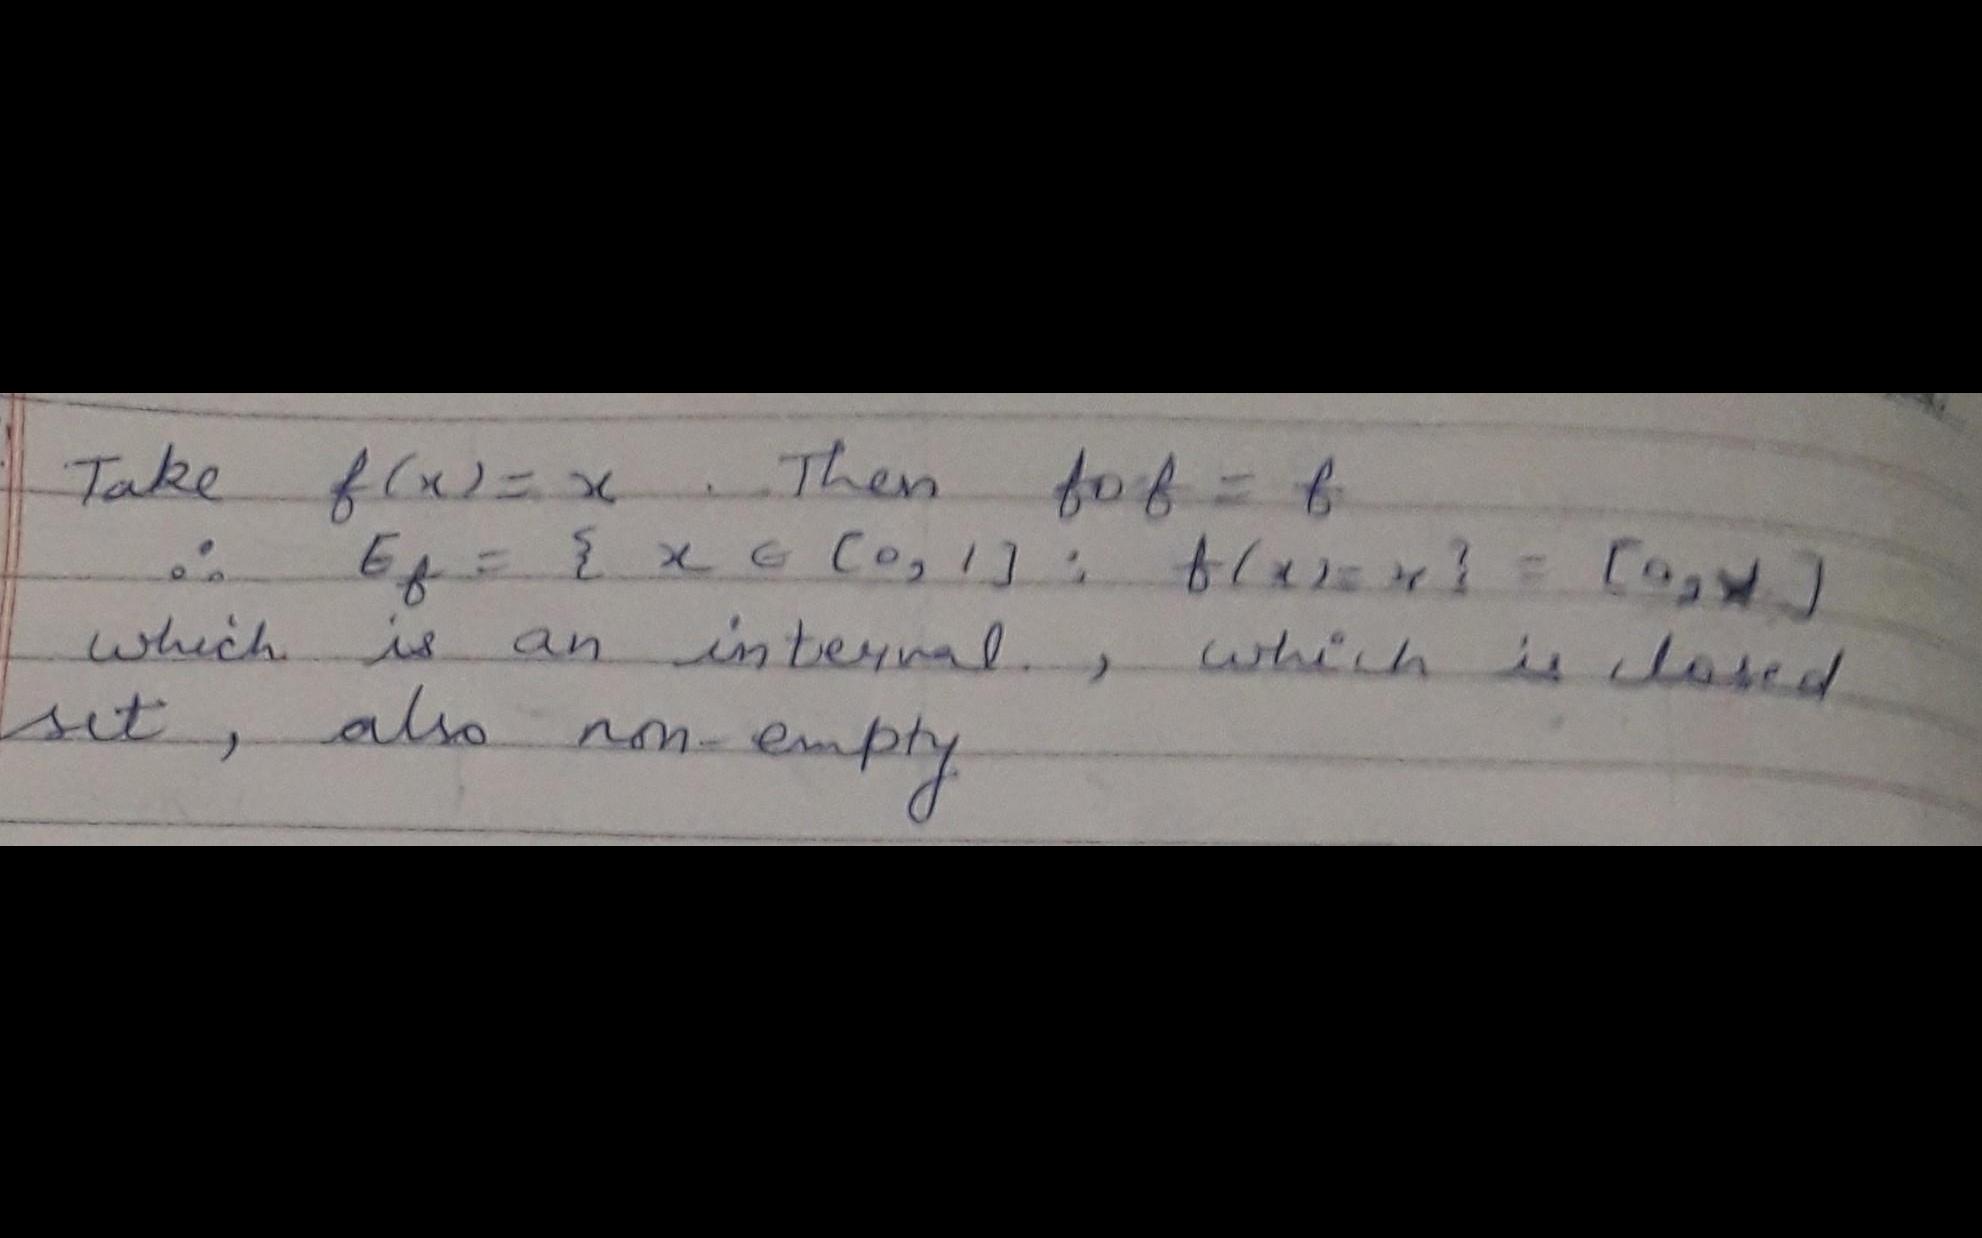 Take f(x) = x . Then fof = f
∴ Ef = { x ∈ [0, 1] : f(x) = x } = [0, 1]
which is an interval , which is closed
set , also non-empty